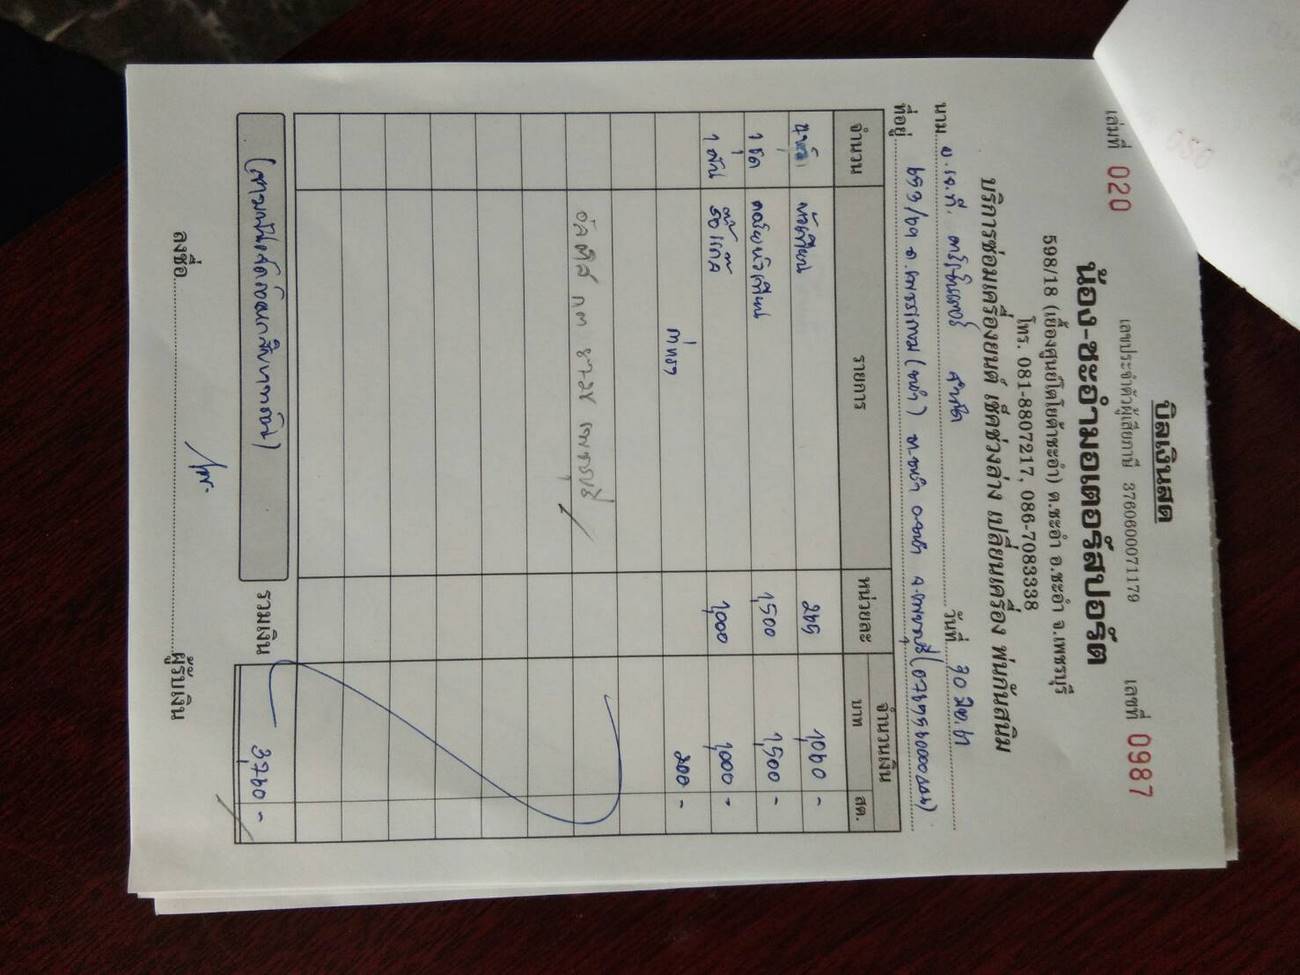 บิลเงินสด
เล่มที่ 020 เลขประจำตัวผู้เสียภาษี 3760600071179 เลขที่ 0987
น้อง-ชะอำมอเตอร์สปอร์ต
598/18 (เยื้องศูนย์โตโยต้าชะอำ) ต.ชะอำ อ.ชะอำ จ.เพชรบุรี
โทร. 081-8807217, 086-7083338
บริการซ่อมเครื่องยนต์ เช็คช่วงล่าง เปลี่ยนเครื่อง พ่นกันสนิม
นาม วันที่ 20
ที่อยู่ ถ.เพชรเกษม ต.ชะอำ อ.ชะอำ จ.เพชรบุรี
จำนวน รายการ หน่วยละ จำนวนเงิน
บาท สต.
หัวเทียน 265 1,060 -
1 ชุด คอยล์หัวเทียน 1,500 1,500 -
1 1,000 1,000 -
ค่าแรง 200 -
เพชรบุรี
(สามพันเจ็ดร้อยหกสิบบาทถ้วน) รวมเงิน 3,760 -
ลงชื่อ ผู้รับเงิน